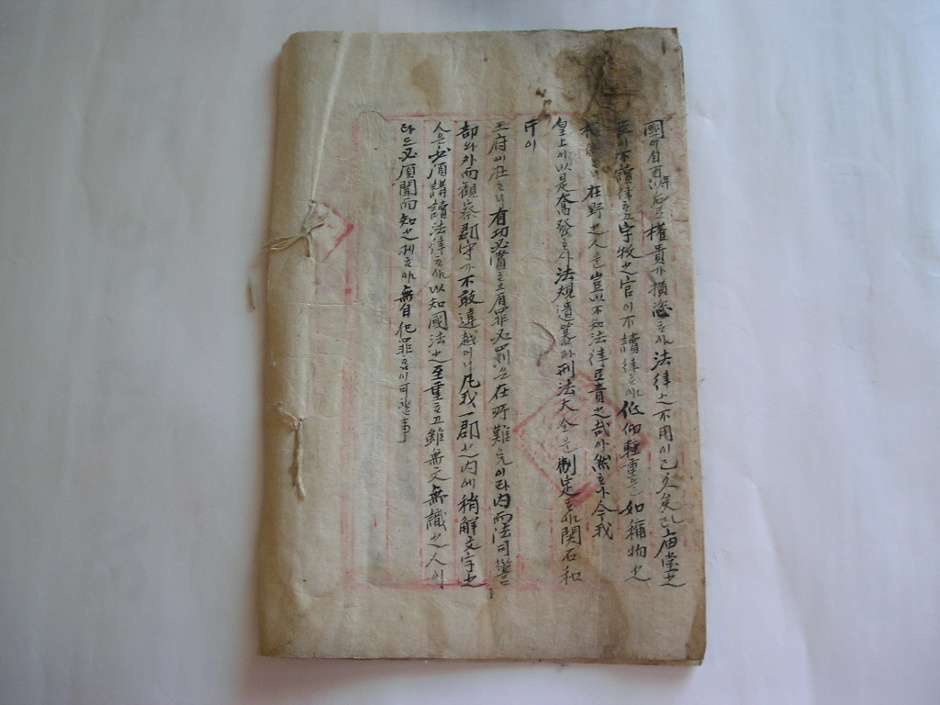 權貴가橫恣ᄒᆞ야法律之不用이已久矣라廟堂之
臣이不讀律ᄒᆞ고字牧之官이不讀律ᄒᆞ야低仰輕重을如稱物之
在野之人을豈以不知法律로責之哉아然ᄒᆞ나今我
皇上이以是奮發ᄒᆞ사法規遺책과刑法大全을制定ᄒᆞ야関石和
斤이
王府에在ᄒᆞ니有功必賞ᄒᆞ고有罪必罰은在所難免이라內而法司
部와外而觀察郡守가不敢違越이니凡我一郡之內에稍解文字之
人은必須講讀法律ᄒᆞ야以知國法之至重ᄒᆞ고雖無文無識之人이
라도必須聞而知之케ᄒᆞ야無自犯罪 可 事